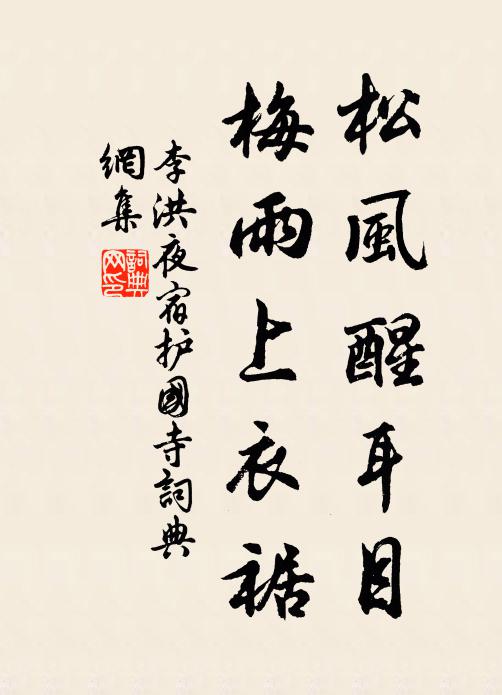 松風醒耳目
梅雨上衣裾
李洪夜宿护國寺詞典
網集
詞典
网印